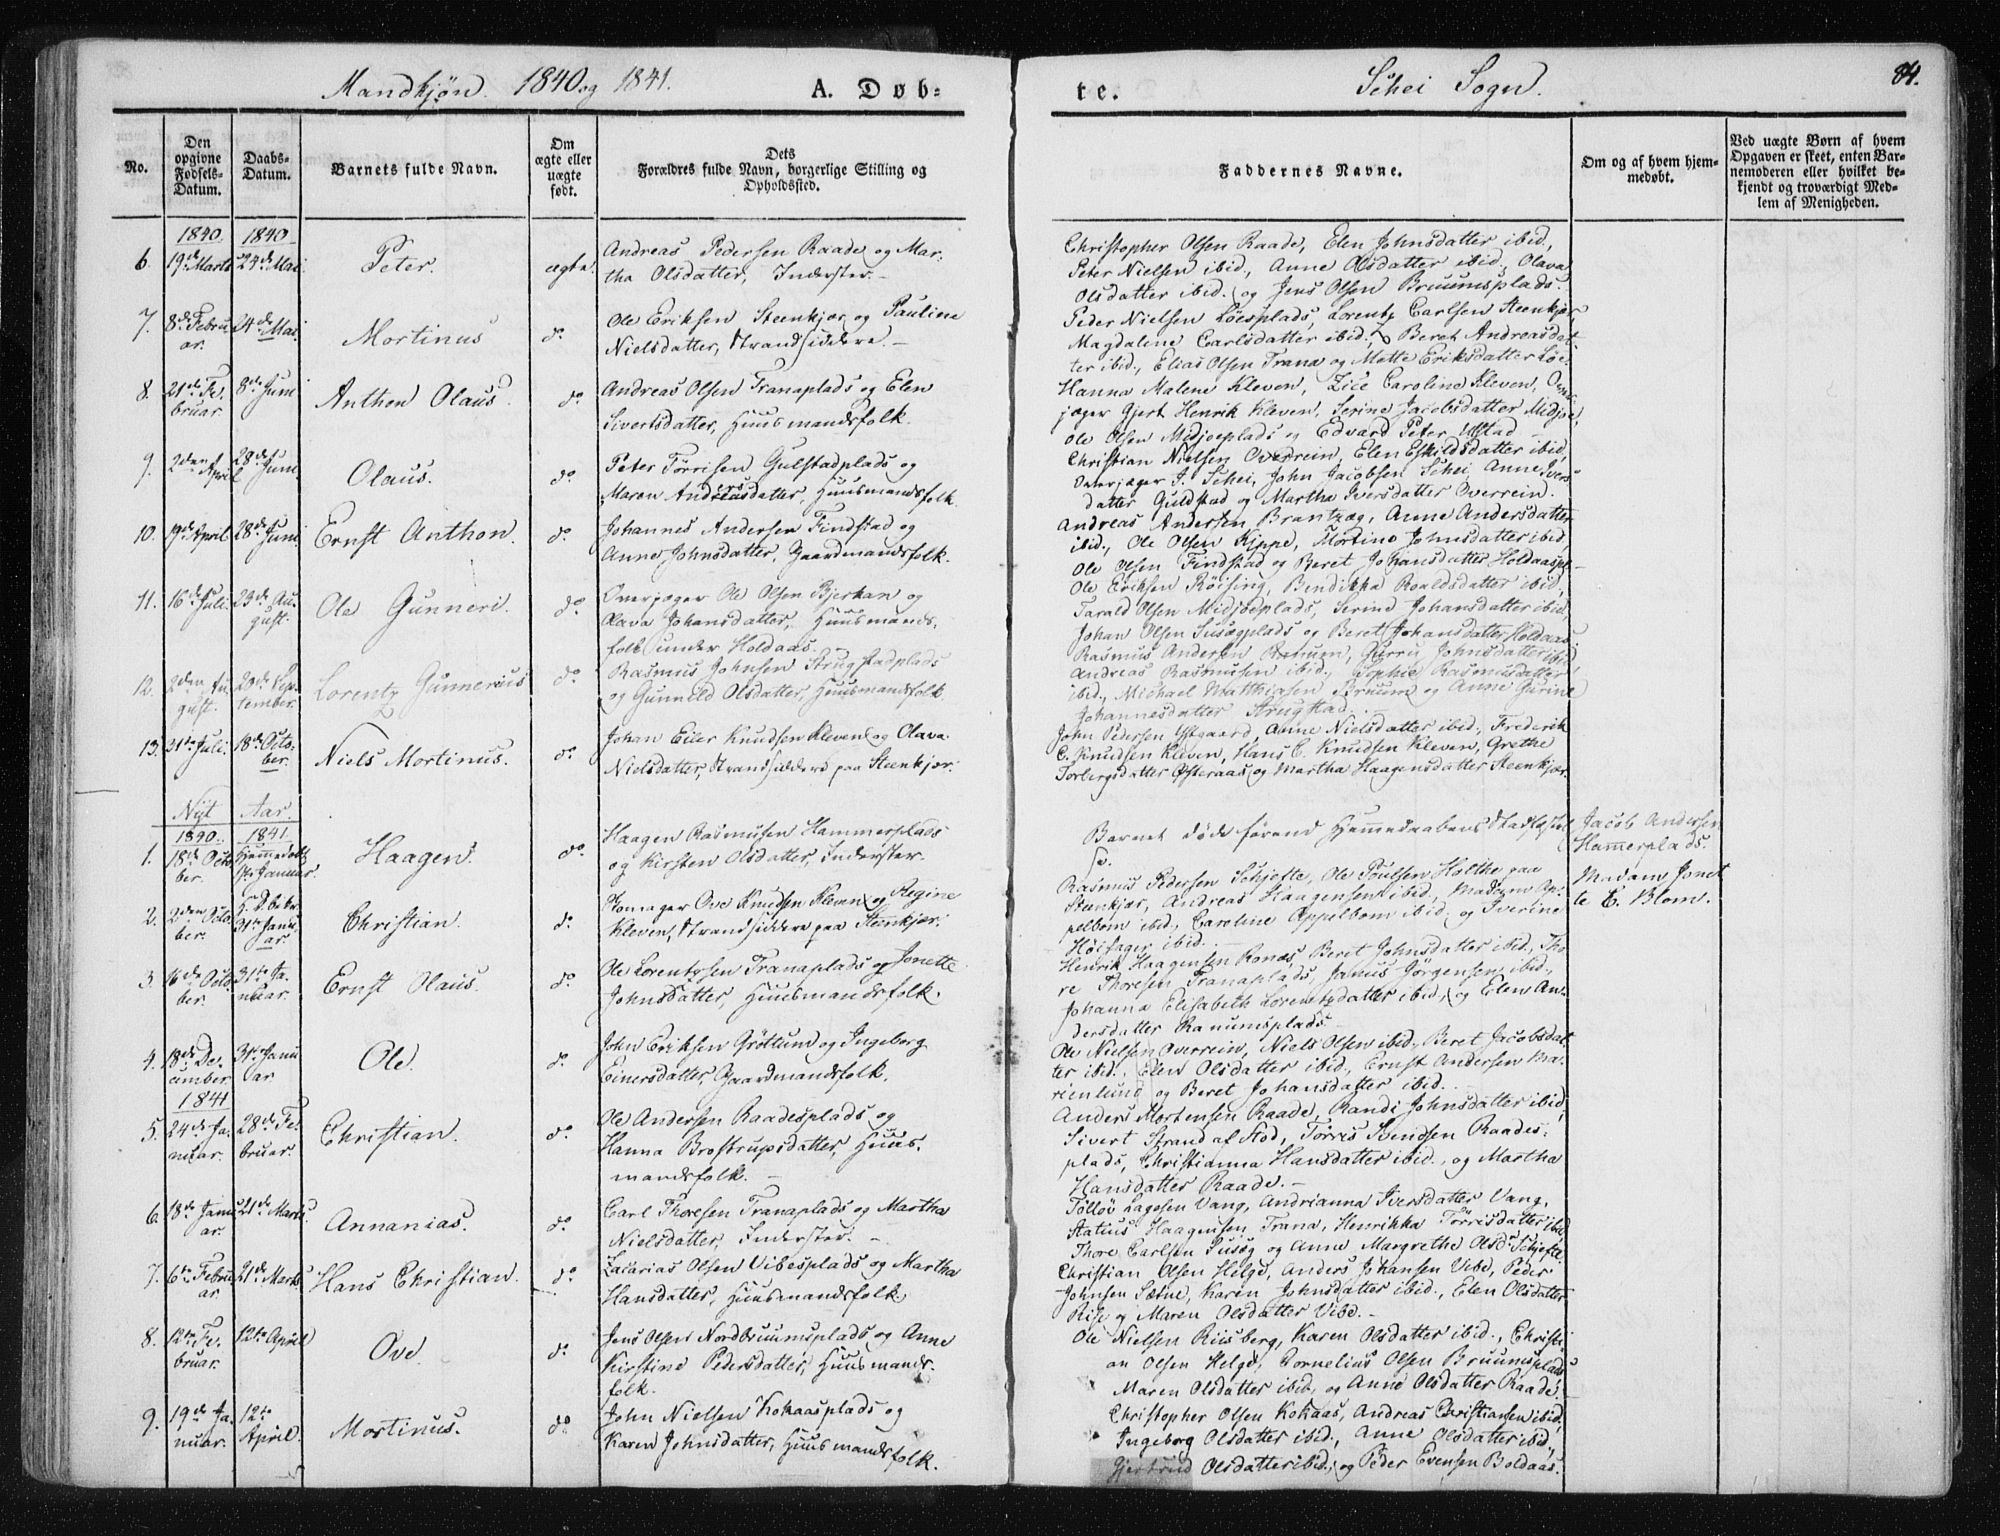 Mandkjøn. 1840 og 1841. A. Døb-
te. Schei Sogn. 84.
No.
Den opgivne Fødsels-Datum.
Daabs-Datum.
Barnets fulde Navn.
Om ægte eller uægte født.
Dets Forældres fulde Navn, borgerlige Stilling og Opholdssted.
Faddernes Navne.
Om og af hvem hjem-
medøbt.
Ved uægte Børn af hvem
Opgaven er skeet, enten Bar-
nemoderen eller hvilket be-
kjendt og troværdigt Med-
lem af Menigheden.
1840. 1840
6. 19de Marts 24de Mai Peter. ægte.
Andreas Pedersen Raade og Mar-
tha Olsdatter, Inderster.
Christopher Olsen Raade, Elen Johnsdatter ibid.,
Peter Nielsen ibid., Anne Olsdatter ibid., Olava
Olsdatter ibid. og Jens Olsen Bruumsplads.
7. 8de Febru-
ar. 24de Mai. Mortinus do
Ole Eriksen Steenkjær og Pauline
Nielsdatter, Strandsiddere.
Peder Nielsen Löesplads, Lorentz Carlsen Steenkjær
Magdalene Carlsdatter ibid., Beret Andreasdat-
ter ibid., Elias Olsen Trana og Mette Eriksdatter Löe.
8. 21de Fe-
bruar. 8de Juni Anthon Olaus. do
Andreas Olsen Tranaplads og Elen
Sivertsdatter, Huusmandsfolk.
Hanna Malene Kleven, Zice Caroline Kleven, Over-
jæger Gjert Henrik Kleven, Serine Jacobsdatter Midjoe,
Ole Olsen Midjoeplads og Edvard Peter Ulstad
9. 2den April 28de Juni. Olaus. do
Peter Torrisen Gulstadplads og
Maren Andersdatter, Huusmandsfolk.
Christian Nielsen Overrein, Elen Eskildsdatter ibid,
Overjæger J. Schei, John Jacobsen Schei Anne Ivers-
datter Guldstad og Martha Iversdatter Overrein.
10. 19de April 28de Juni Ernst Anthon. do
Johannes Andersen Findstad og
Anne Johnsdatter, Gaardmandsfolk.
Andreas Andersen Brantzæg, Anne Andersdatter
ibid., Ole Olsen Kippe, Mortine Johnsdatter ibid.
Ole Olsen Findstad og Beret Johansdatter Holdaaspl.
11. 16de Juli. 23de Au-
gust. Ole Gunneri. do
Overjæger Ole Olsen Bjerkan og
Olava Johansdatter, Huusmands-
folk under Holdaas.
Ole Eriksen Röising, Bendikka Roaldsdatter ibid,
Tarald Olsen Midjoeplads, Serine Johansdatter ibid,
Johan Olsen Susægplads og Beret Johansdatter Holdaas
12. 2den Au-
gust. 20de Sep-
tember. Lorentz Gunnerius do
Rasmus Johnsen Strugstadplads
og Gunneld Olsdatter, Huusmandsfolk
Rasmus Andersen Bruum, Gurru Johnsdatter ibid,
Andreas Rasmussen ibid., Sophie Rasmusdatter
ibid., Michael Matthiasen Bruum og Anne Gurine
Johannesdatter Strugstad.
13. 21de Juli. 18de Octo-
ber. Niels Mortinus. do
Johan Eiler Knudsen Kleven og Olava
Nielsdatter, Strandsiddere paa Steenkjær.
John Pedersen Ystgaard, Anne Nielsdatter ibid., Frederik
C. Knudsen Kleven, Hans C. Knudsen Kleven, Grethe
Torbergsdatter Østeraas og Martha Haagensdatter Steenkjær.
Nyt Aar.
1840. 1841.
1. 18de Octo-
ber. Hjemmedöbt
Januar. Haagen. do
Haagen Rasmusen Hammerplads
og Kirsten Olsdatter, Inderster.
Barnet döde förend Hjemmedaabens Stadfæstel-
se.
Jacob Andersen
Hamerplads.
2. 2den Octo-
ber. 31te Janu-
ar. Christian. do
Ove Knudsen Kleven og Regine
Kleven, Strandsiddere paa Steenkjær.
Rasmus Pedersen Schjefte, Ole Poulsen Holthe paa
Steenkjær, Andreas Haagensen ibid., Madam Ap-
pelbom ibid., Caroline Appelbom ibid. og Iverine
Höisager ibid.
Madam Jonet-
te E. Blom.
3. 16de Octo-
ber. 31te Ja-
nuar. Ernst Olaus. do
Ole Lorentzsen Tranaplads og Jonette
Johnsdatter, Huusmandsfolk.
Henrik Haagensen Ronæs, Beret Johnsdatter ibid., Tho-
re Thoresen Tranaplads, Janus Jörgensen ibid.,
Johanna Elisabeth Lorentzdatter ibid., og Elen An-
dersdatter Ranumsplads.
4. 18de De-
cember. 31te Janu-
ar Ole. do
John Eriksen Gröttum og Ingeborg
Einersdatter, Gaardmandsfolk.
Ole Nielsen Overrein, Niels Olsen ibid., Beret Jacobsdat-
ter ibid., Elen Olsdatter ibid., Ernst Andersen Ma-
rienlund og Beret Johansdatter ibid.
1841
5. 24de Ja-
nuar. 28de Fe-
bruar. Christian. do
Ole Andersen Raadesplads og
Hanna Brostrupsdatter, Huus-
mandsfolk.
Anders Mortensen Raade, Randi Johnsdatter ibid,
Sivert Strand af Stod, Torris Svendsen Raades-
plads, Christianna Hansdatter ibid., og Martha
Hansdatter Raade.
6. 18de Janu-
ar. 21de Marts. Annanias. do
Carl Thoresen Tranaplads og Martha
Nielsdatter, Inderster.
Tollöv Lagesen Vang, Andrianna Iversdatter Vang,
Statius Haagensen Trana, Henrikka Törrisdatter ibid,
Thore Carlsen Susæg og Anne Margrethe Olsd. Schjefte.
7. 6te Febru-
ar. 21de Marts Hans Christian. do
Zacarias Olsen Vibesplads og Martha
Hansdatter, Huusmandsfolk.
Christian Olsen Helge, Anders Johansen Vibe, Peder
Johnsen Sætne, Karen Johnsdatter ibid., Elen Olsdatter
Rise og Maren Olsdatter Vibe.
8. 12te Fe-
bruar. 12te April Ove. do
Jens Olsen Nordbruumsplads og Anne
Kirstine Pedersdatter, Huusmands-
folk.
Ole Nielsen Riisberg, Karen Olsdatter ibid., Christi-
an Olsen Helge, Cornelius Olsen Bruumsplads
Maren Olsdatter ibid. og Anne Olsdatter Raade.
9. 19de Ja-
nuar. 12te
April. Mortinus. do
John Nielsen Kokaasplads og
Karen Johnsdatter, Huusmandsfolk.
Christopher Olsen Kokaas, Andreas Christiansen ibid,
Ingeborg Olsdatter ibid., Anne Olsdatter ibid.,
Gjertrud Olsdatter ibid., og Peder Evensen Boldaas.